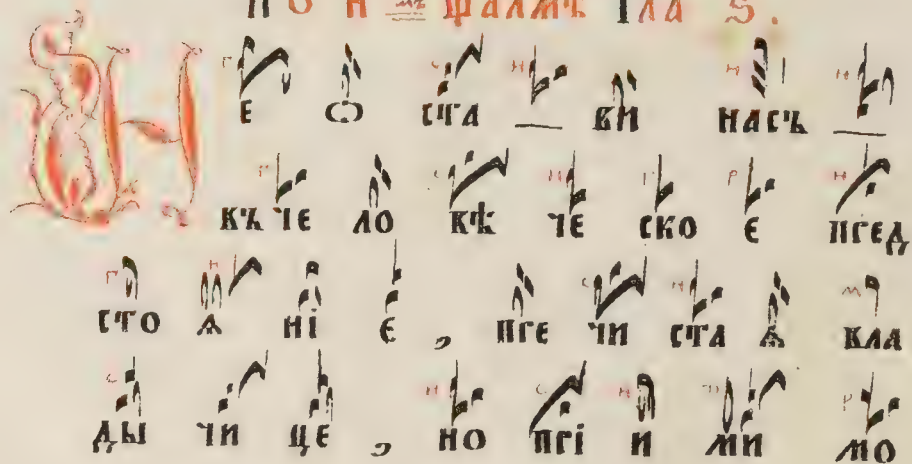 по н҃ мъ ѱалмѣ гла ѕ.
Н Е Ѡ СТА ВИ НАСЪ
ВЪ ЧЕ ЛО ВѢ ЧЕ СКО Е ПРЕД
СТО Ѧ НІ Е , ПРЕ ЧИ СТА Ѧ ВЛА
ДЫ ЧИ ЦЕ , НО ПРІ И МИ МО